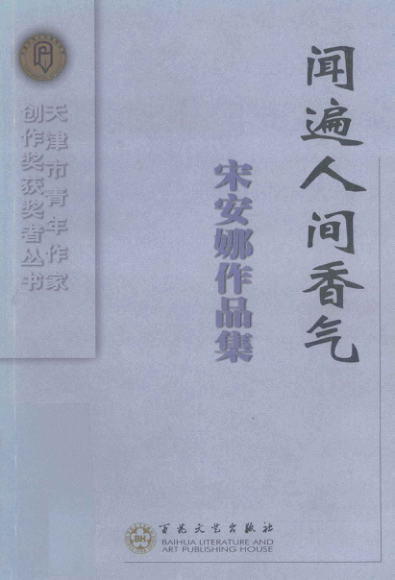 闻遍人间香气
宋安娜作品集
天津市青年作家
创作奖获奖者丛书
百花文艺出版社
BAIHUA LITERATURE AND
ART PUBLISHING HOUSE
BH